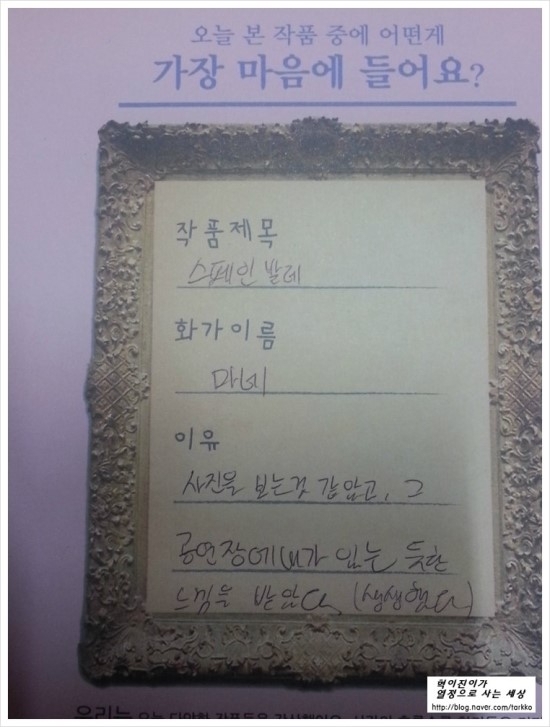 오늘 본 작품 중에 어떤게
가장 마음에 들어요?
작품제목
스페인 발레
화가이름
마네
이유
사진을 보는것 같았고, 그
공연장에 내가 있는 듯한
느낌을 받았다. (생생했다)
우리는 오늘 다양한 작품들을 감상했어요.
혁이진이가
열정으로 사는 세상
http://blog.naver.com/tarkko